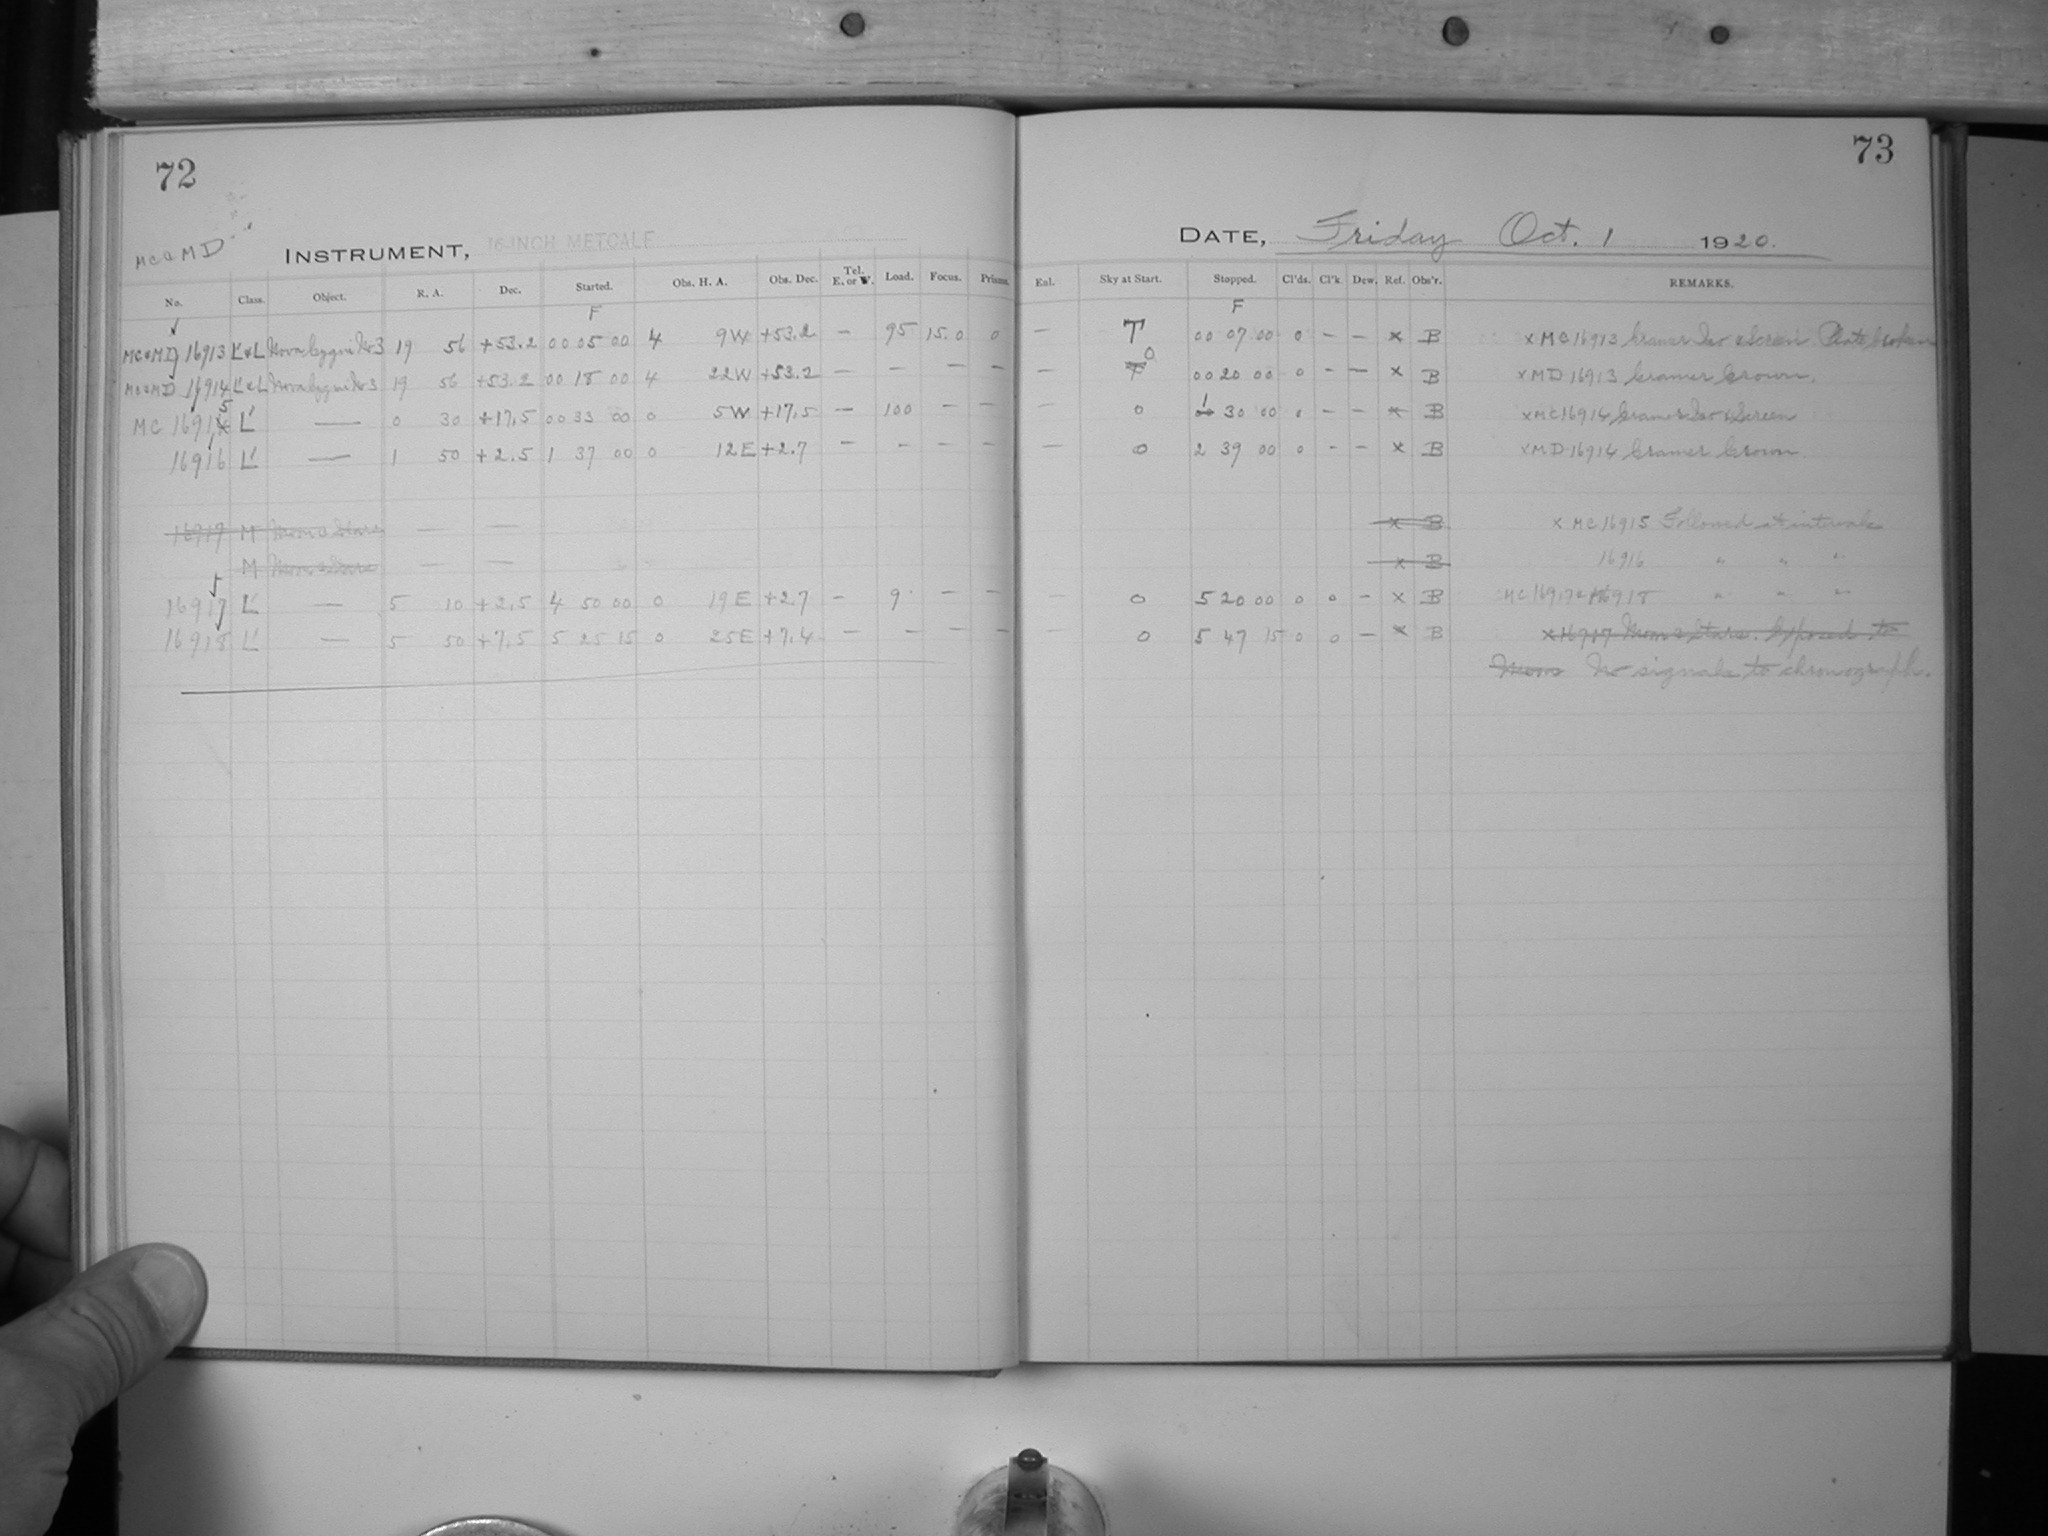 72
MC & MD
INSTRUMENT, 16-INCH METCALF
No. Class. Object. R. A. Dec. Started. Obs. H. A. Obs. Dec. Tel. E. or W. Load. Focus. Prisms.
F
MC & MD 16913 L' & L Nova Cygni No 3 19 56 +53.2 00 05 00 4 9W +53.2 — 95 15.0 0
MC & MD 16914 L' & L Nova Cygni No 3 19 56 +53.2 00 18 00 4 22W +53.2 — — — —
MC 16915 L' — 0 30 +17.5 00 33 00 0 5W +17.5 — 100 — —
16916 L' — 1 50 +2.5 1 37 00 0 12E +2.7 — — — —
16917 M Moon & Stars — —
M Moon & Stars — —
16917 L' — 5 10 +2.5 4 50 00 0 19E +2.7 — 9 — —
16918 L' — 5 50 +7.5 5 25 15 0 25E +7.4 — — — —
73
DATE, Friday Oct. 1 1920.
Eal. Sky at Start. Stopped. Cl'ds. Cl'k Dew. Ref. Obs'r. REMARKS.
F
— T 00 07 00 0 — — x B x MC 16913 Cramer Iso & Screen Plate broken
— 0 00 20 00 0 — — x B x MD 16913 Cramer Crown.
— 0 1 30 00 0 — — x B x MC 16914 Cramer Iso & Screen
— 0 2 39 00 0 — — x B x MD 16914 Cramer Crown
x B x MC 16915 Followed at intervals
x B 16916 " " "
— 0 5 20 00 0 0 — x B MC 16917 & 16918 " " "
— 0 5 47 15 0 0 — x B x 16717 Moon & Stars. Exposed to
Moon No signals to chronograph.